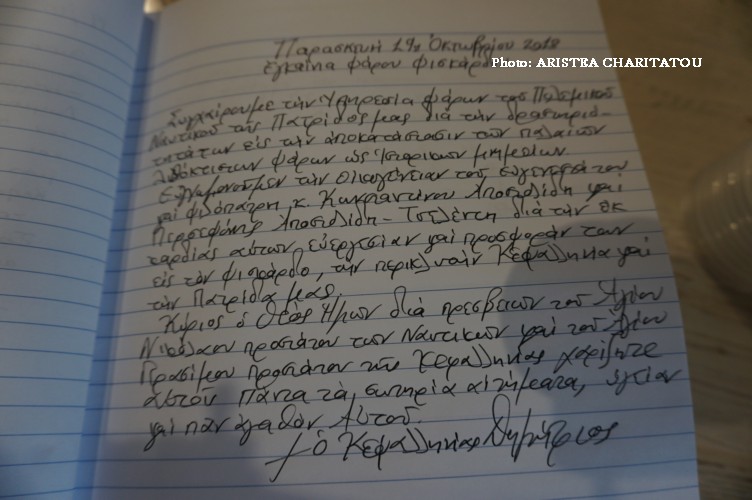 Παρασκευή 19η Ὀκτωβρίου 2018
Ἐγκαίνια φάρου Φισκάρδο
Photo: ARISTEA CHARITATOU
Συγχαίρουμε τήν Ὑπηρεσία Φάρων τοῦ Πολεμικοῦ
Ναυτικοῦ τῆς Πατρίδος μας διά τήν δραστηριό-
τητά των εἰς τήν ἀποκατάστασιν τῶν παλαιῶν
λιθόκτιστων φάρων ὡς μνημείων.
Εὐγνωμονοῦμεν τήν Οἰκογένειαν τοῦ εὐγενεστάτου
καί φιλόπατρη κ. Κωνσταντίνου Ἀποστολίδη καί
Περσεφόνης Ἀποστολίδη - διά τήν ἐκ
καρδίας αὐτῶν, εὐεργεσίαν καί προσφοράν των
εἰς τόν Φισκάρδο, τήν Κεφαλληνία καί
τήν Πατρίδα μας.
Κύριος ὁ Θεός Ἡμῶν διά πρεσβειῶν τοῦ Ἁγίου
Νικολάου προστάτου τῶν Ναυτικῶν καί τοῦ Ἁγίου
Γερασίμου προστάτου τῆς Κεφαλληνίας
πάντα τά, σωτηρία αἰτήματα, ὑγείαν
καί πᾶν ἀγαθόν Αὐτοῦ.
† ὁ Κεφαλληνίας Δημήτριος